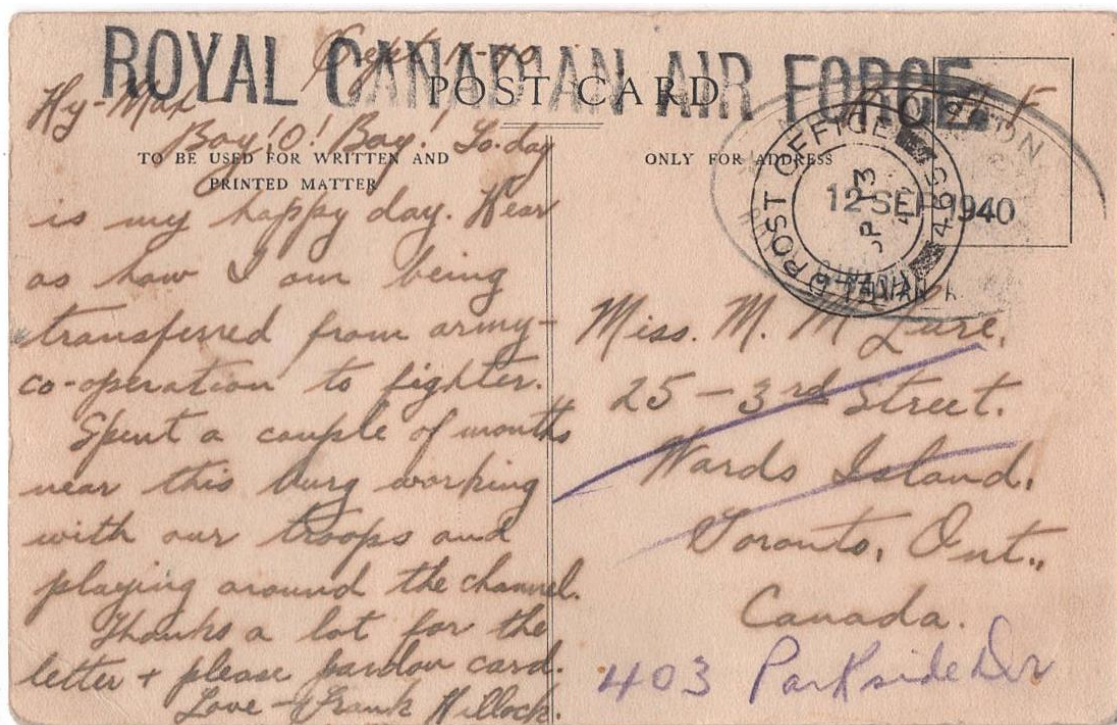 ROYAL CANADIAN AIR FORCE
POST CARD
TO BE USED FOR WRITTEN AND
PRINTED MATTER
ONLY FOR ADDRESS
Sept 11-40
Hy-Max
Boy! O! Boy! To-day
is my happy day. Hear
as how I am being
transferred from army-
co-operation to fighter.
Spent a couple of months
near this burg working
with our troops and
playing around the channel.
Thanks a lot for the
letter + please pardon card.
Love - Frank Hillock.
POST OFFICE
SP 13
12 SEP 1940
Miss. M. McLure,
25 - 3rd Street.
Wards Island,
Toronto, Ont.,
Canada.
403 Parkside Dr